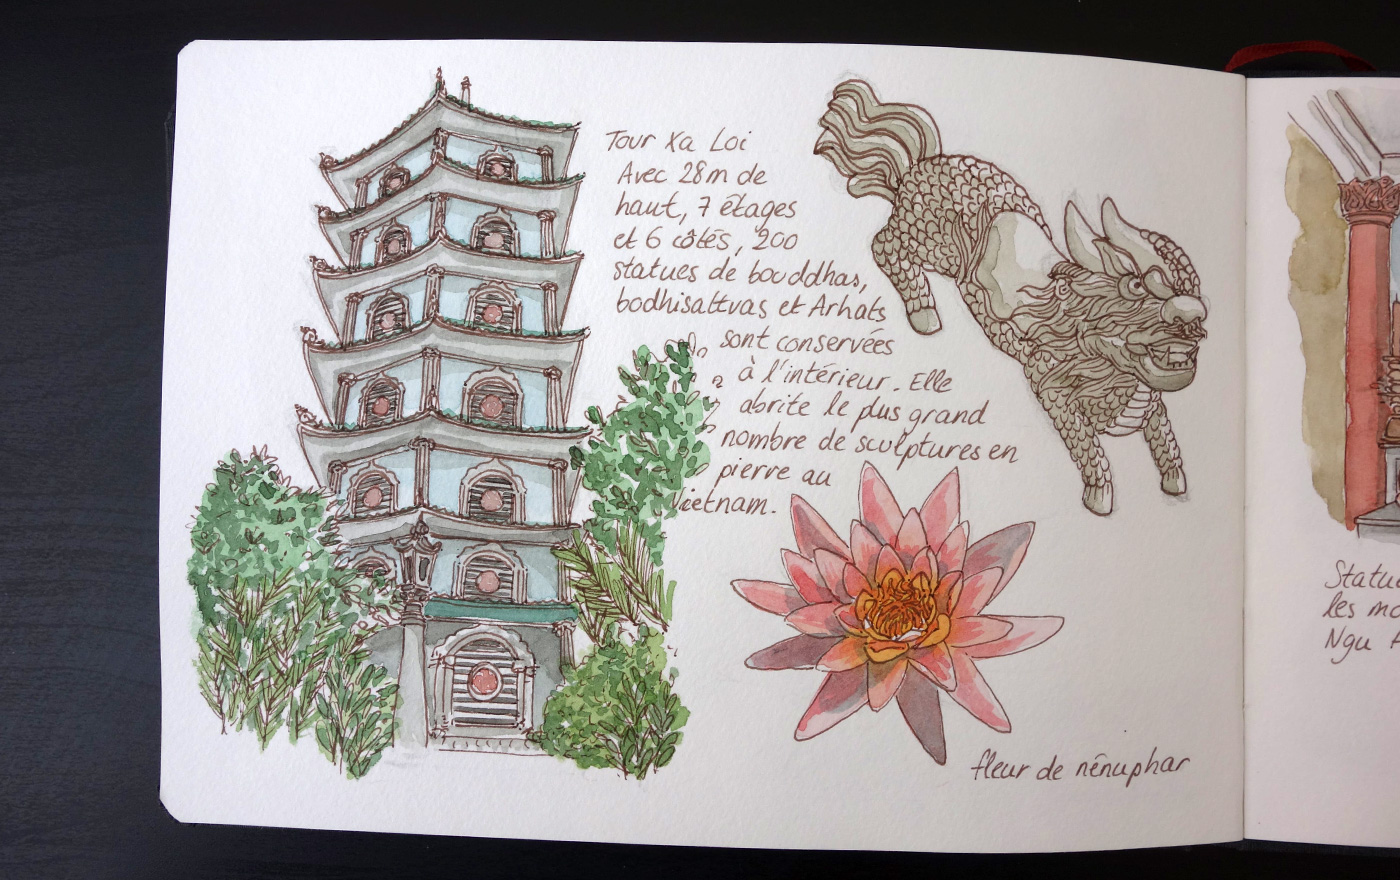 Tour Xa Loi
Avec 28m de
haut, 7 étages
et 6 côtés, 200
statues de bouddhas,
bodhisattvas et Arhats
sont conservées
à l'intérieur. Elle
abrite le plus grand
nombre de sculptures en
pierre au
Vietnam.
fleur de nénuphar
Statu
les mo
Ngu